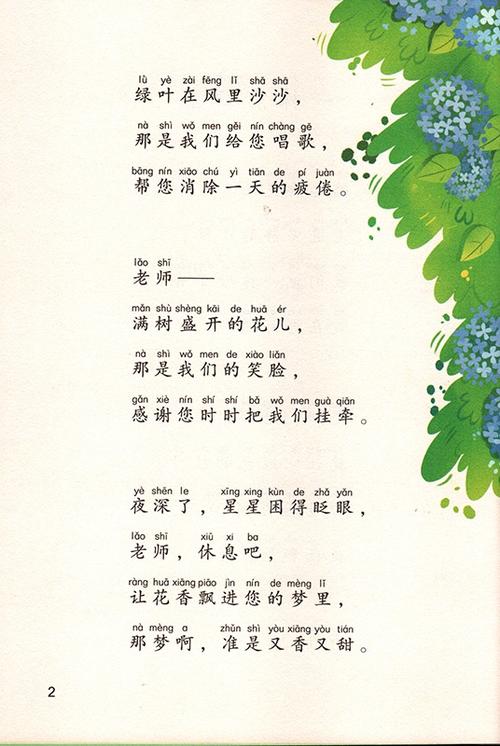 lǜ yè zài fēng lǐ shā shā
绿叶在风里沙沙，
nà shì wǒ men gěi nín chàng gē
那是我们给您唱歌，
bāng nín xiāo chú yì tiān de pí juàn
帮您消除一天的疲倦。
lǎo shī
老师——
mǎn shù shèng kāi de huā ér
满树盛开的花儿，
nà shì wǒ men de xiào liǎn
那是我们的笑脸，
gǎn xiè nín shí shí bǎ wǒ men guà qiān
感谢您时时把我们挂牵。
yè shēn le xīng xing kùn de zhǎ yǎn
夜深了，星星困得眨眼，
lǎo shī xiū xi ba
老师，休息吧，
ràng huā xiāng piāo jìn nín de mèng lǐ
让花香飘进您的梦里，
nà mèng a zhǔn shì yòu xiāng yòu tián
那梦啊，准是又香又甜。
2